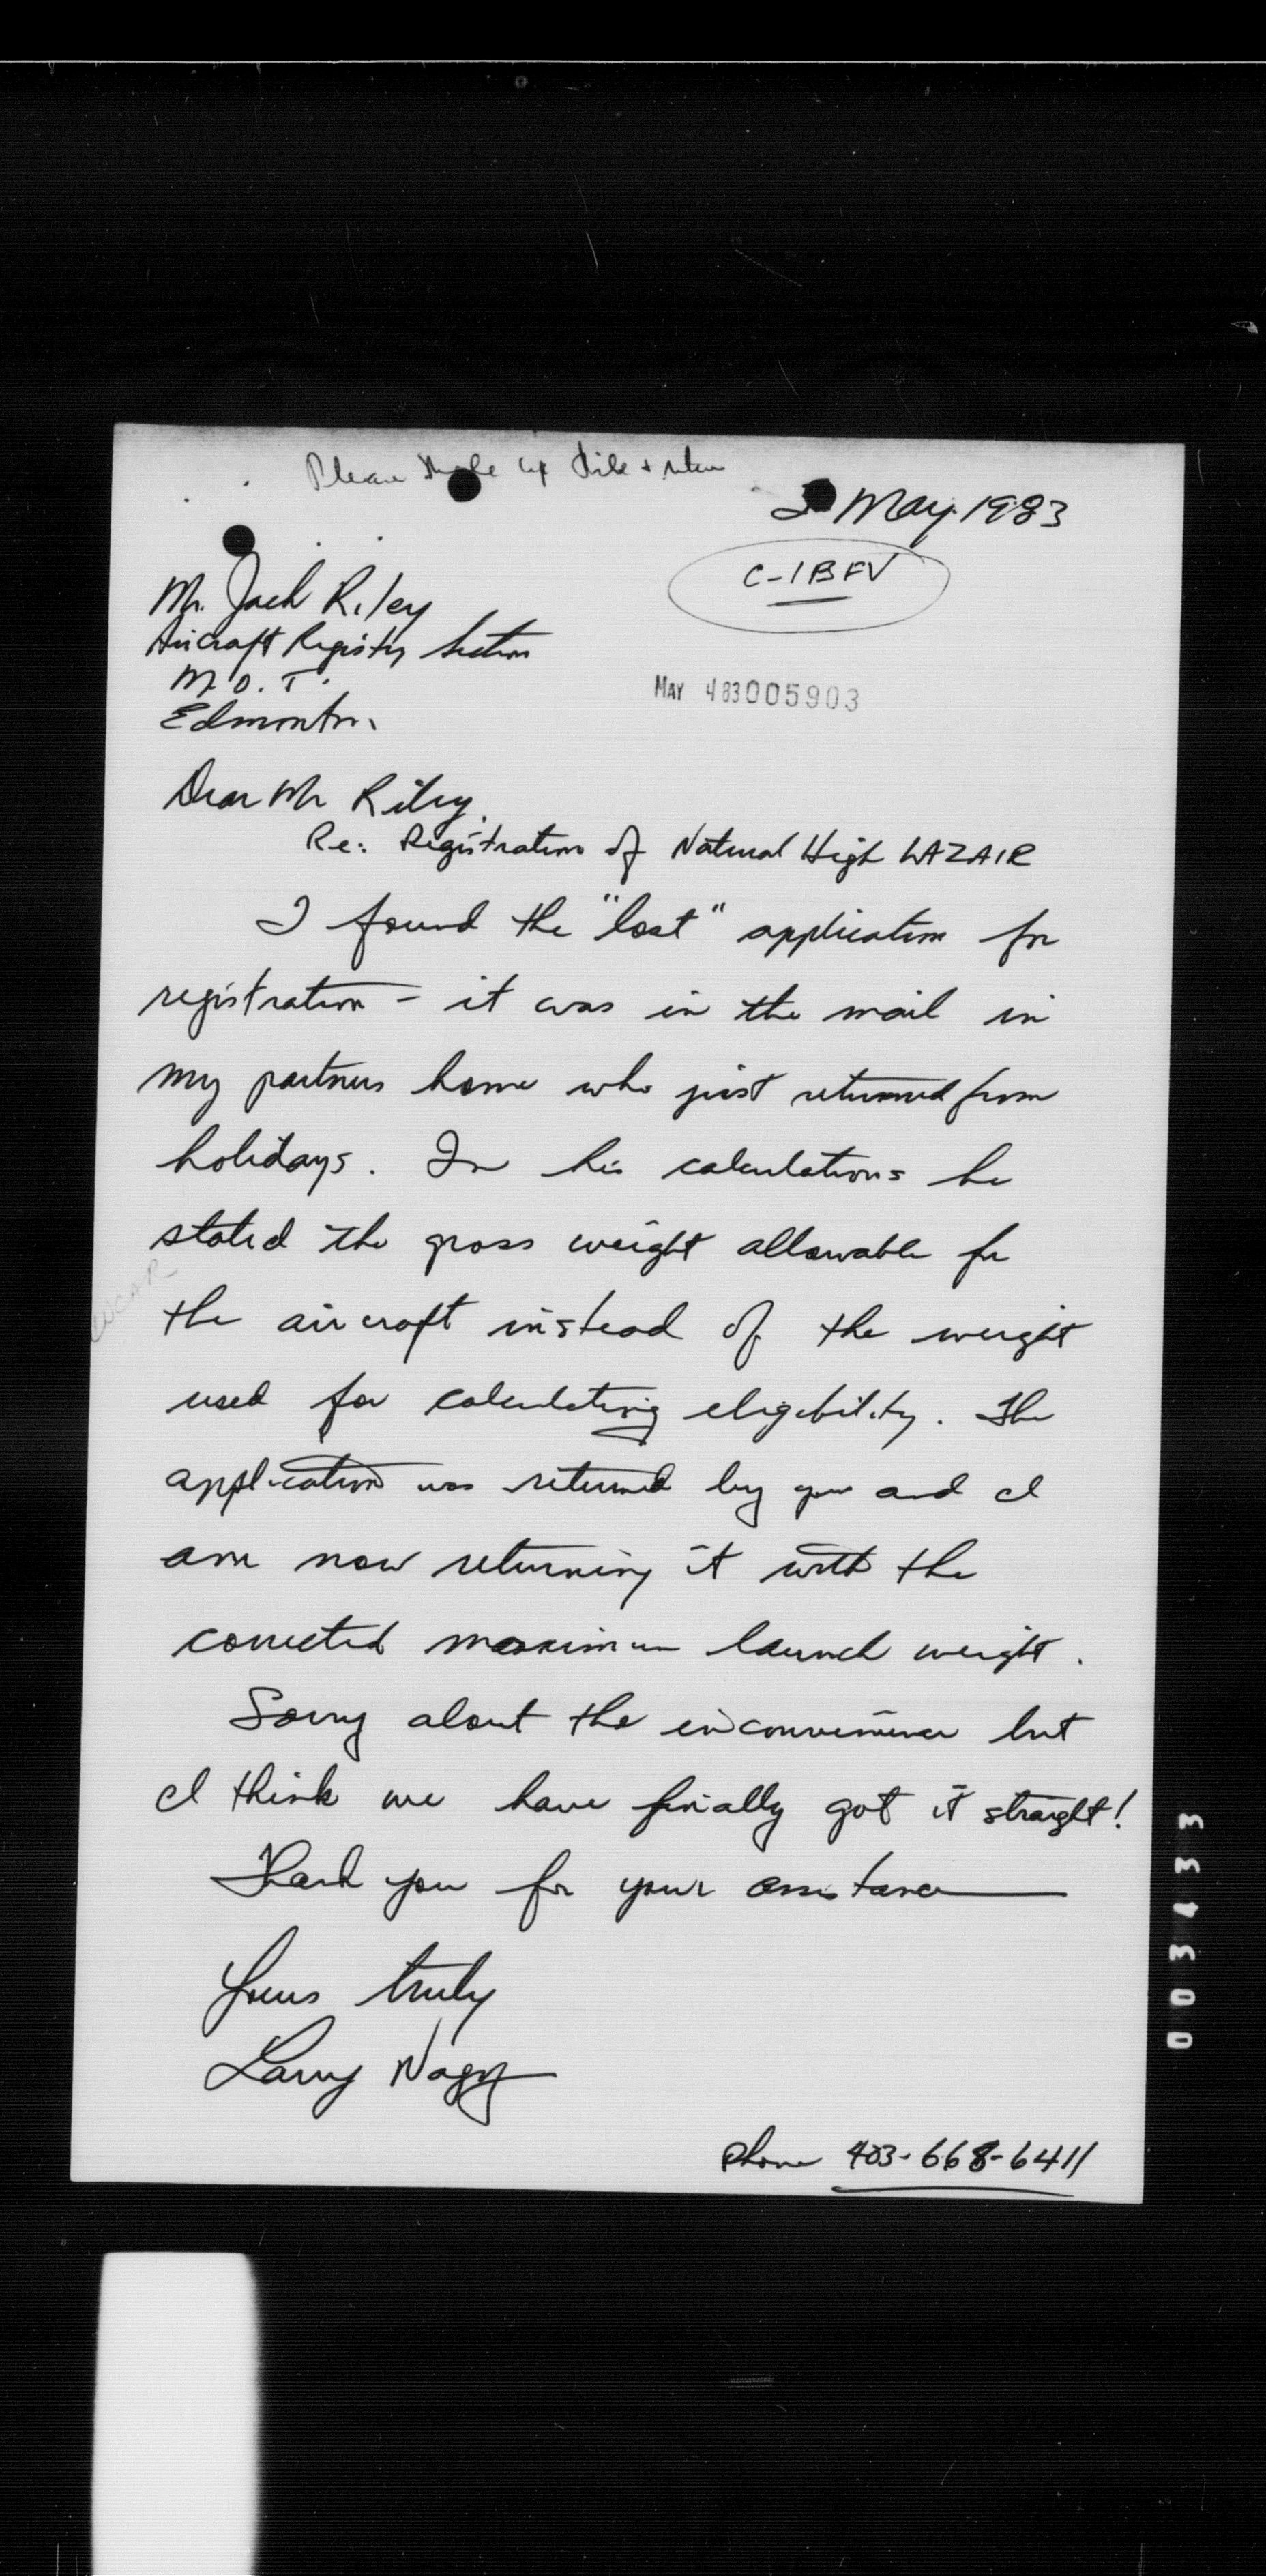 Please up file & return
2 May 1983
C-IBFV
Mr. Jack Riley
Aircraft Registry Section
M.O.T.
Edmonton.
MAY 4 83 005903
Dear Mr Riley,
Re: Registration of Natural High LAZAIR
I found the "lost" application for
registration - it was in the mail in
my partners home who just returned from
holidays. In his calculations he
stated the gross weight allowable for
the aircraft instead of the weight
used for calculating eligibility. The
application was returned by you and I
am now returning it with the
corrected maximum launch weight.
Sorry about the inconvenience but
I think we have finally got it straight!
Thank you for your assistance
Yours truly
Larry Nagy
Phone 403-668-6411
003433